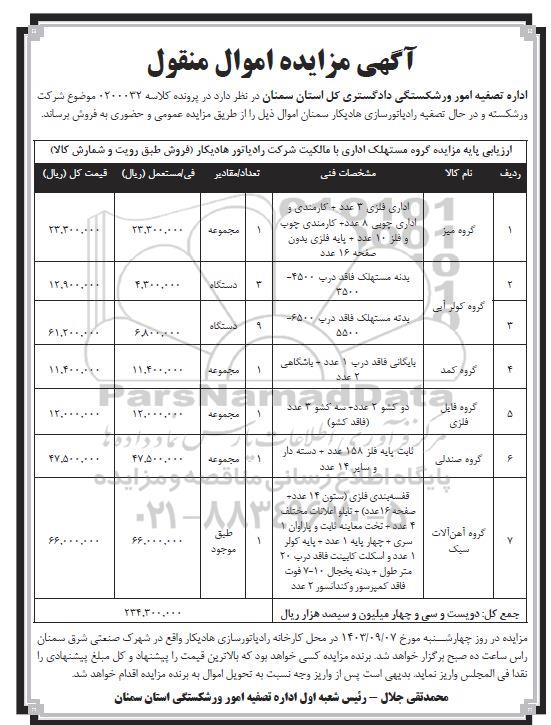 آگهی مزایده اموال منقول
اداره تصفیه امور ورشکستگی دادگستری کل استان سمنان در نظر دارد در پرونده کلاسه ۰۲۰۰۰۳۲ موضوع شرکت
ورشکسته و در حال تصفیه رادیاتورسازی هادیکار سمنان اموال ذیل را از طریق مزایده عمومی و حضوری به فروش برساند.
ارزیابی پایه مزایده گروه مستهلک اداری با مالکیت شرکت رادیاتور هادیکار (فروش طبق رویت و شمارش کالا)
ردیف نام کالا مشخصات فنی تعداد/مقادیر فی/مستعمل (ریال) قیمت کل (ریال)
۱ گروه میز اداری فلزی ۳ عدد + کارمندی و
اداری چوبی ۸ عدد+ کارمندی چوب
و فلز ۱۰ عدد + پایه فلزی بدون
صفحه ۱۶ عدد
۱ مجموعه ۲۳,۳۰۰,۰۰۰ ۲۳,۳۰۰,۰۰۰
۲ گروه کولر آبی بدنه مستهلک فاقد درب ۴۵۰۰-
۳۵۰۰
۳ دستگاه ۴,۳۰۰,۰۰۰ ۱۲,۹۰۰,۰۰۰
۳ بدنه مستهلک فاقد درب ۶۵۰۰-
۵۵۰۰
۹ دستگاه ۶,۸۰۰,۰۰۰ ۶۱,۲۰۰,۰۰۰
۴ گروه کمد بایگانی فاقد درب ۱ عدد + باشگاهی
۲ عدد
۱ مجموعه ۱۱,۴۰۰,۰۰۰ ۱۱,۴۰۰,۰۰۰
۵ گروه فایل
فلزی
دو کشو ۲ عدد+ سه کشو ۳ عدد
(فاقد کشو)
۱ مجموعه ۱۲,۰۰۰,۰۰۰ ۱۲,۰۰۰,۰۰۰
۶ گروه صندلی ثابت پایه فلز ۱۵۸ عدد + دسته دار
و سایر ۱۴ عدد
۱ مجموعه ۴۷,۵۰۰,۰۰۰ ۴۷,۵۰۰,۰۰۰
۷ گروه آهن‌آلات
سبک
قفسه‌بندی فلزی (ستون ۱۴ عدد+
صفحه ۱۶عدد) + تابلو اعلانات مختلف
۴ عدد + تخت معاینه ثابت و پاراوان ۱
سری + چهار پایه ۱ عدد + پایه کولر
۱ عدد و اسکلت کابینت فاقد درب ۲۰
متر طول + بدنه یخچال ۱۰-۷ فوت
فاقد کمپرسور وکندانسور ۲ عدد
۱ طبق
موجود
۶۶,۰۰۰,۰۰۰ ۶۶,۰۰۰,۰۰۰
جمع کل: دویست و سی و چهار میلیون و سیصد هزار ریال ۲۳۴,۳۰۰,۰۰۰
مزایده در روز چهارشنبه مورخ ۱۴۰۳/۰۹/۰۷ در محل کارخانه رادیاتورسازی هادیکار واقع در شهرک صنعتی شرق سمنان
راس ساعت ده صبح برگزار خواهد شد. برنده مزایده کسی خواهد بود که بالاترین قیمت را پیشنهاد و کل مبلغ پیشنهادی را
نقدا فی المجلس واریز نماید. بدیهی است پس از واریز وجه نسبت به تحویل اموال به برنده مزایده اقدام خواهد شد.
محمدتقی جلال – رئیس شعبه اول اداره تصفیه امور ورشکستگی استان سمنان
ParsNamadData
مرکز فرآوری اطلاعات پارس نماد داده ها
پایگاه اطلاع رسانی مناقصه و مزایده